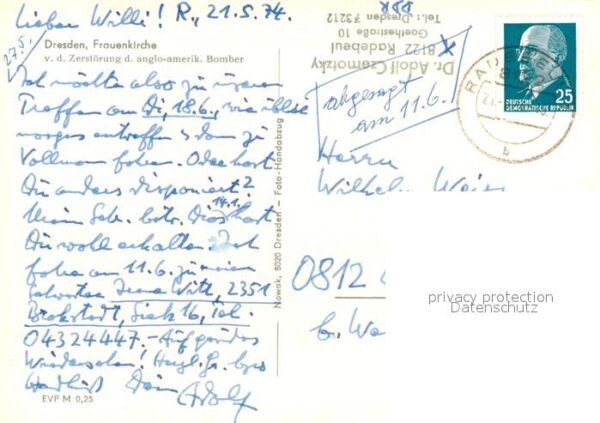 Lieber Willi! R., 21.5.74.
27.5.
Dresden, Frauenkirche
v. d. Zerstörung d. anglo-amerik. Bomber
Ich möchte also zu
Treffen am Di, 18.6., wie
morgens eintreffen & dann zu
Vollmann fahren. Oder hast
Du anders disponiert?
Mein 14.1.
Du wohl erhalten. Ich
fahre am 11.6. zu
Witt, 2351
Brokstedt, 16, Tel.
04324447. - Auf
Wiedersehen! Herzl. Gr.
Dein Adolf
EVP M 0,25
Nowak, 8020 Dresden - Foto-Handabzug
DDR
Dr. Adolf Czarnotzky
X 8122 Radebeul
Goethestraße 10
Tel.: Dresden 73212
abgesagt
am 11.6.
RADEBEUL
b
DEUTSCHE
DEMOKRATISCHE REPUBLIK
25
Herrn
0812
privacy protection
Datenschutz